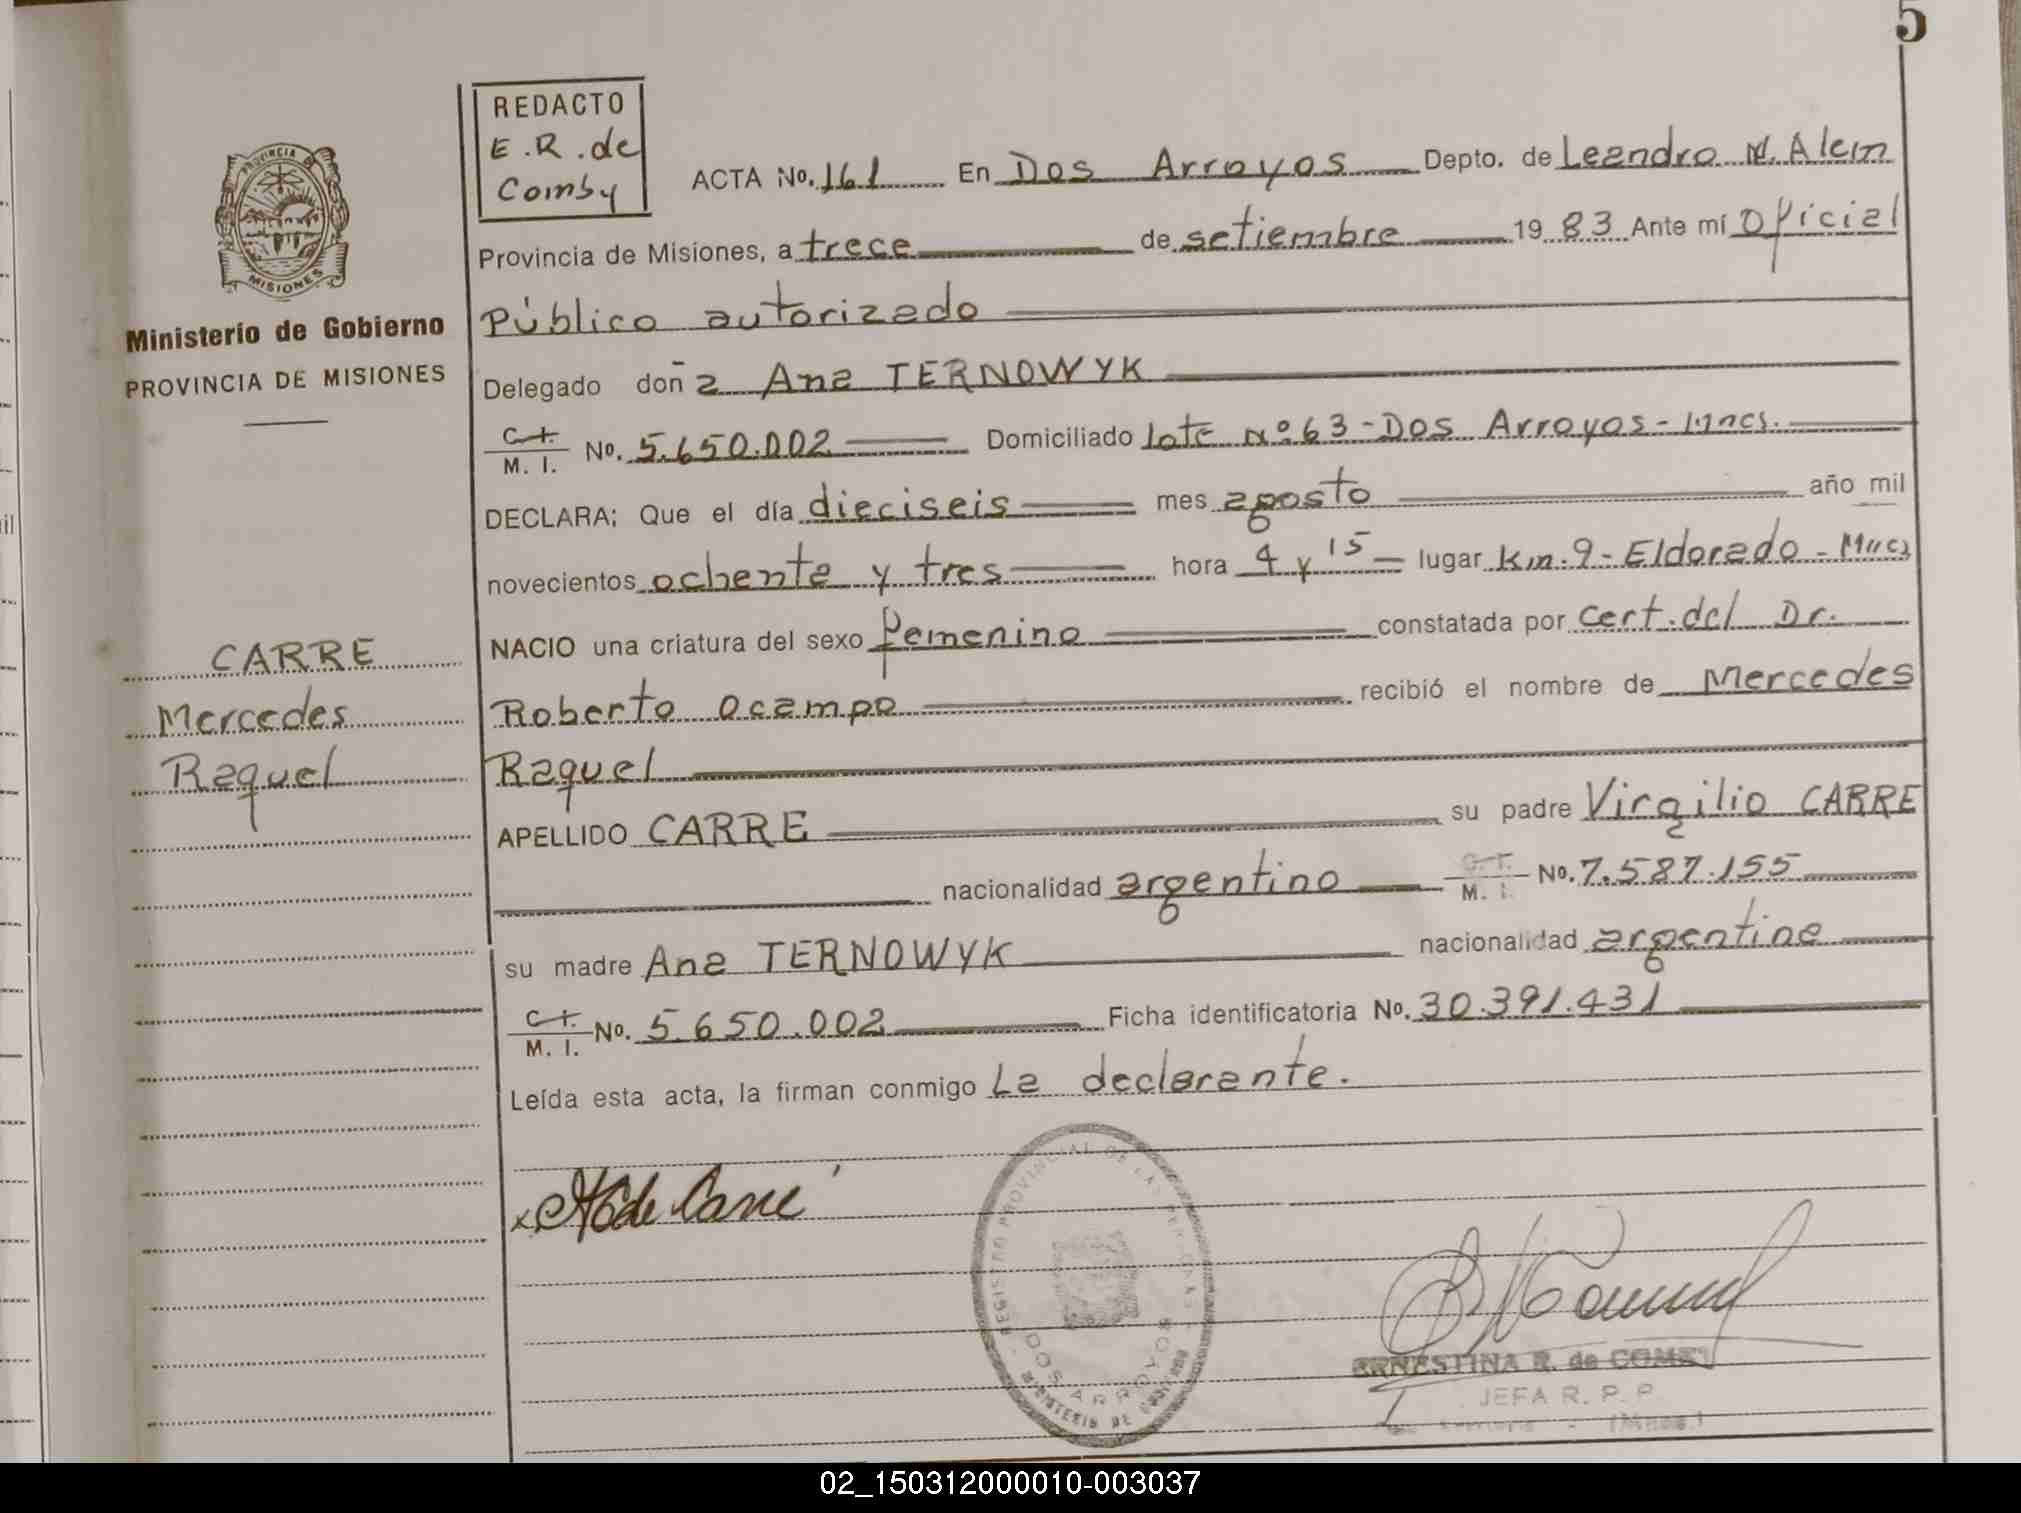 5
REDACTO
E.R. de
Comby
ACTA No. 161 En Dos Arroyos Depto. de Leandro N. Alem
Provincia de Misiones, a trece de setiembre 19 83 Ante mí Oficial
Público autorizado
Delegado doña Ana TERNOWYK
C. I.
M. I. No. 5.650.002 Domiciliado lote nº 63 - Dos Arroyos - Mnes.
DECLARA; Que el día dieciseis mes agosto año mil
novecientos ochenta y tres hora 4 y 15 lugar Km. 9 - Eldorado - Mnes
NACIO una criatura del sexo femenino constatada por Cert. del Dr.
Roberto Ocampo recibió el nombre de Mercedes
Raquel
APELLIDO CARRE su padre Virgilio CARRE
nacionalidad argentino C. I.
M. I. No. 7.587.155
su madre Ana TERNOWYK nacionalidad argentina
C. I.
M. I. No. 5.650.002 Ficha identificatoria No. 30.391.431
Leída esta acta, la firman conmigo La declarante.
PROVINCIA DE
MISIONES
Ministerio de Gobierno
PROVINCIA DE MISIONES
CARRE
Mercedes
Raquel
REGISTRO PROVINCIAL DE LAS PERSONAS
DOS ARROYOS
ERNESTINA R. de COMBY
JEFA R. P. P.
(Mnes.)
02_150312000010-003037